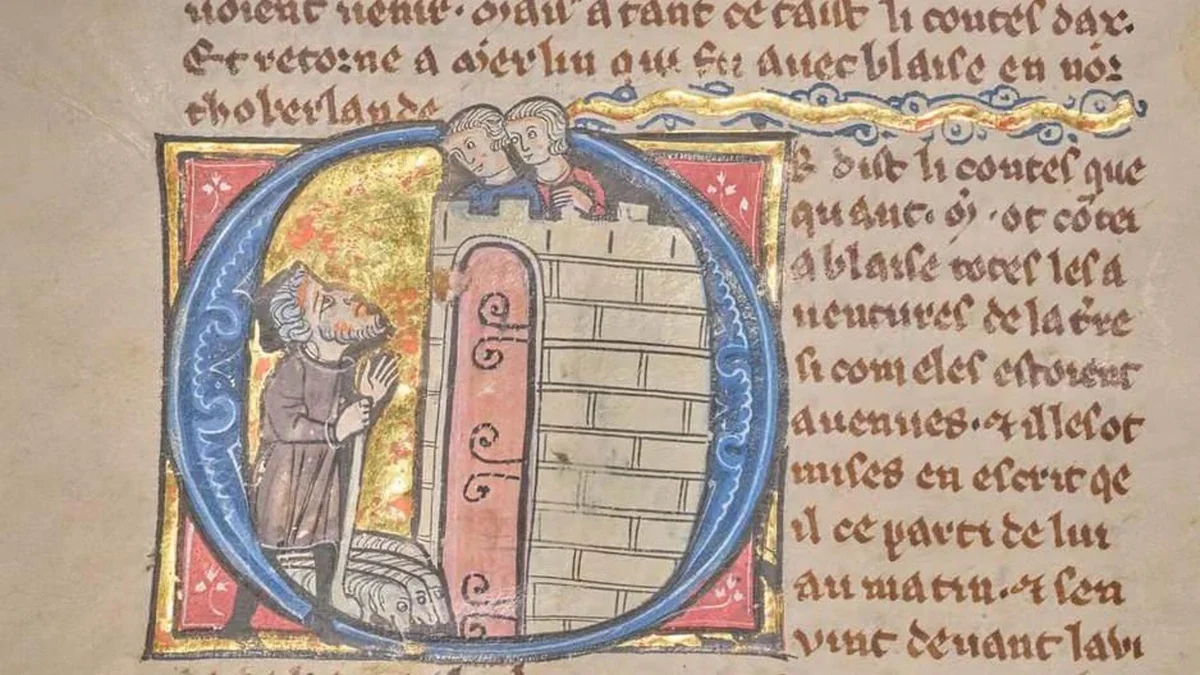 uoient uenir. Mais a tant ce taist li contes dax.
Et retorne a Merlin qui fu auec blaise en nor
thoberlande
R dist li contes que
quant. M. ot cōtei
a blaise totes les a
uentures de la t̄re
si com eles estoient
auenues. & il les ot
mises en escrit qe
il ce parti de lui
au matin. & sen
vint deuant la vi